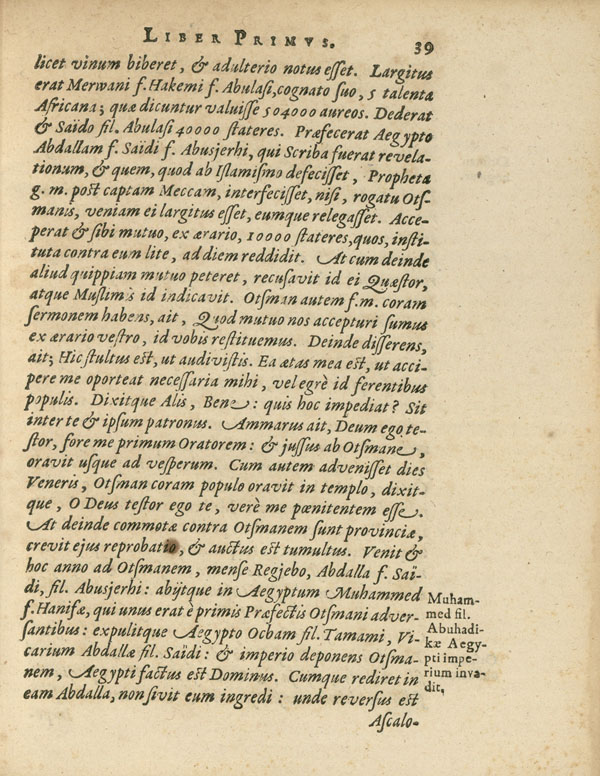 LIBER PRIMVS. 39
licet vinum biberet, & adulterio notus esset. Largitus
erat Merwani f. Hakemi f. Abulasi, cognato suo, 5 talenta
Africana; quæ dicuntur valuisse 504000 aureos. Dederat
& Saïdo fil. Abulasi 40000 stateres. Præfecerat Aegypto
Abdallam f. Saïdi f. Abusjerhi, qui Scriba fuerat revela-
tionum, & quem, quod ab Islamismo defecisset, Propheta
g. m. post captam Meccam, interfecisset, nisi, rogatu Ots-
manis, veniam ei largitus esset, eumque relegasset. Acce-
perat & sibi mutuo, ex ærario, 10000 stateres, quos, insti-
tuta contra eum lite, ad diem reddidit. At cum deinde
aliud quippiam mutuo peteret, recusavit id ei Quæstor,
atque Muslimis id indicavit. Otsman autem f. m. coram
sermonem habens, ait, Quod mutuo nos accepturi sumus
ex ærario vestro, id vobis restituemus. Deinde disserens,
ait; Hic stultus est, ut audivistis. Ea ætas mea est, ut acci-
pere me oporteat necessaria mihi, vel egrè id ferentibus
populis. Dixitque Alis, Bene: quis hoc impediat? Sit
inter te & ipsum patronus. Ammarus ait, Deum ego te-
stor, fore me primum Oratorem: & jussus ab Otsmane,
oravit usque ad vesperum. Cum autem advenisset dies
Veneris, Otsman coram populo oravit in templo, dixit-
que, O Deus testor ego te, verè me pœnitentem esse.
At deinde commotæ contra Otsmanem sunt provinciæ,
crevit ejus reprobatio, & auctus est tumultus. Venit &
hoc anno ad Otsmanem, mense Regjebo, Abdalla f. Saï-
di, fil. Abusjerhi: abijtque in Aegyptum Muhammed
f. Hanifæ, qui unus erat è primis Præfectis Otsmani adver-
santibus: expulitque Aegypto Ocbam fil. Tamami, Vi-
carium Abdallæ fil. Saïdi: & imperio deponens Otsma-
nem, Aegypti factus est Dominus. Cumque rediret in
eam Abdalla, non sivit eum ingredi: unde reversus est
Ascalo-
Muham-
med fil.
Abuhadi-
kæ Aegy-
pti impe-
rium inva-
dit,